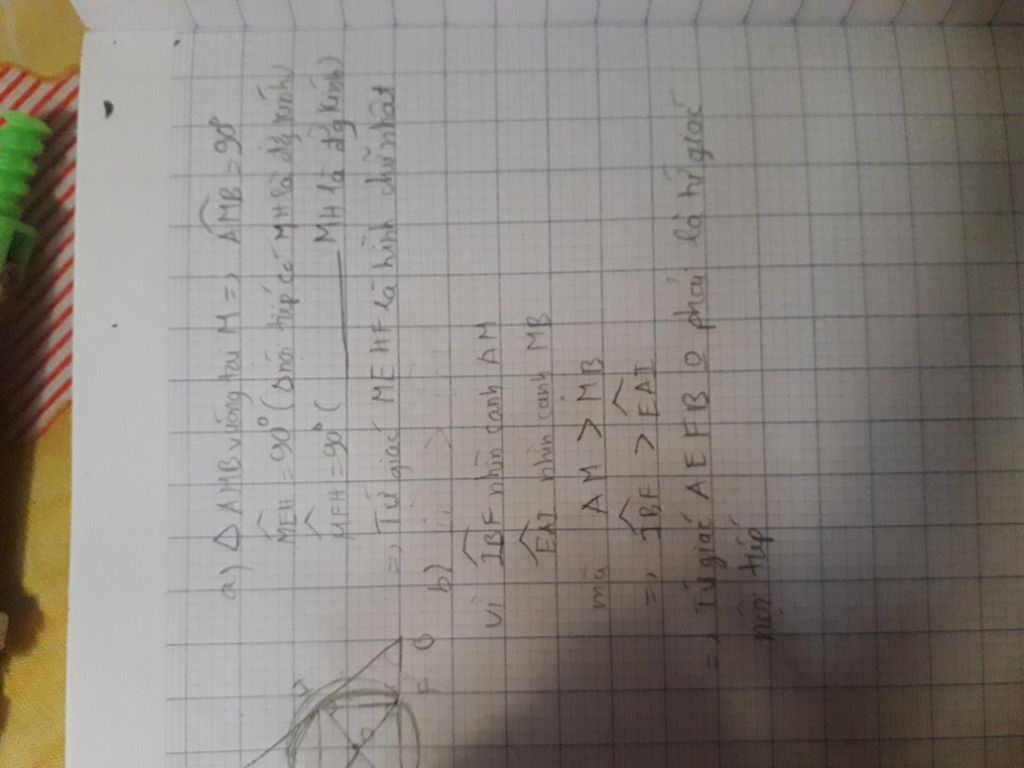 a) Δ AMB vuông tại M => AMB = 90°
MEH = 90° (Δ nội tiếp có MH là đg kính)
MFH = 90° ( ——— MH là đg kính)
=> Tứ giác MEHF là hình chữ nhật
b)
Vì IBF nhìn cạnh AM
EAI nhìn cạnh MB
mà AM > MB
=> IBF > EAI
=> Tứ giác AEFB O phải là tứ giác
nội tiếp
F B